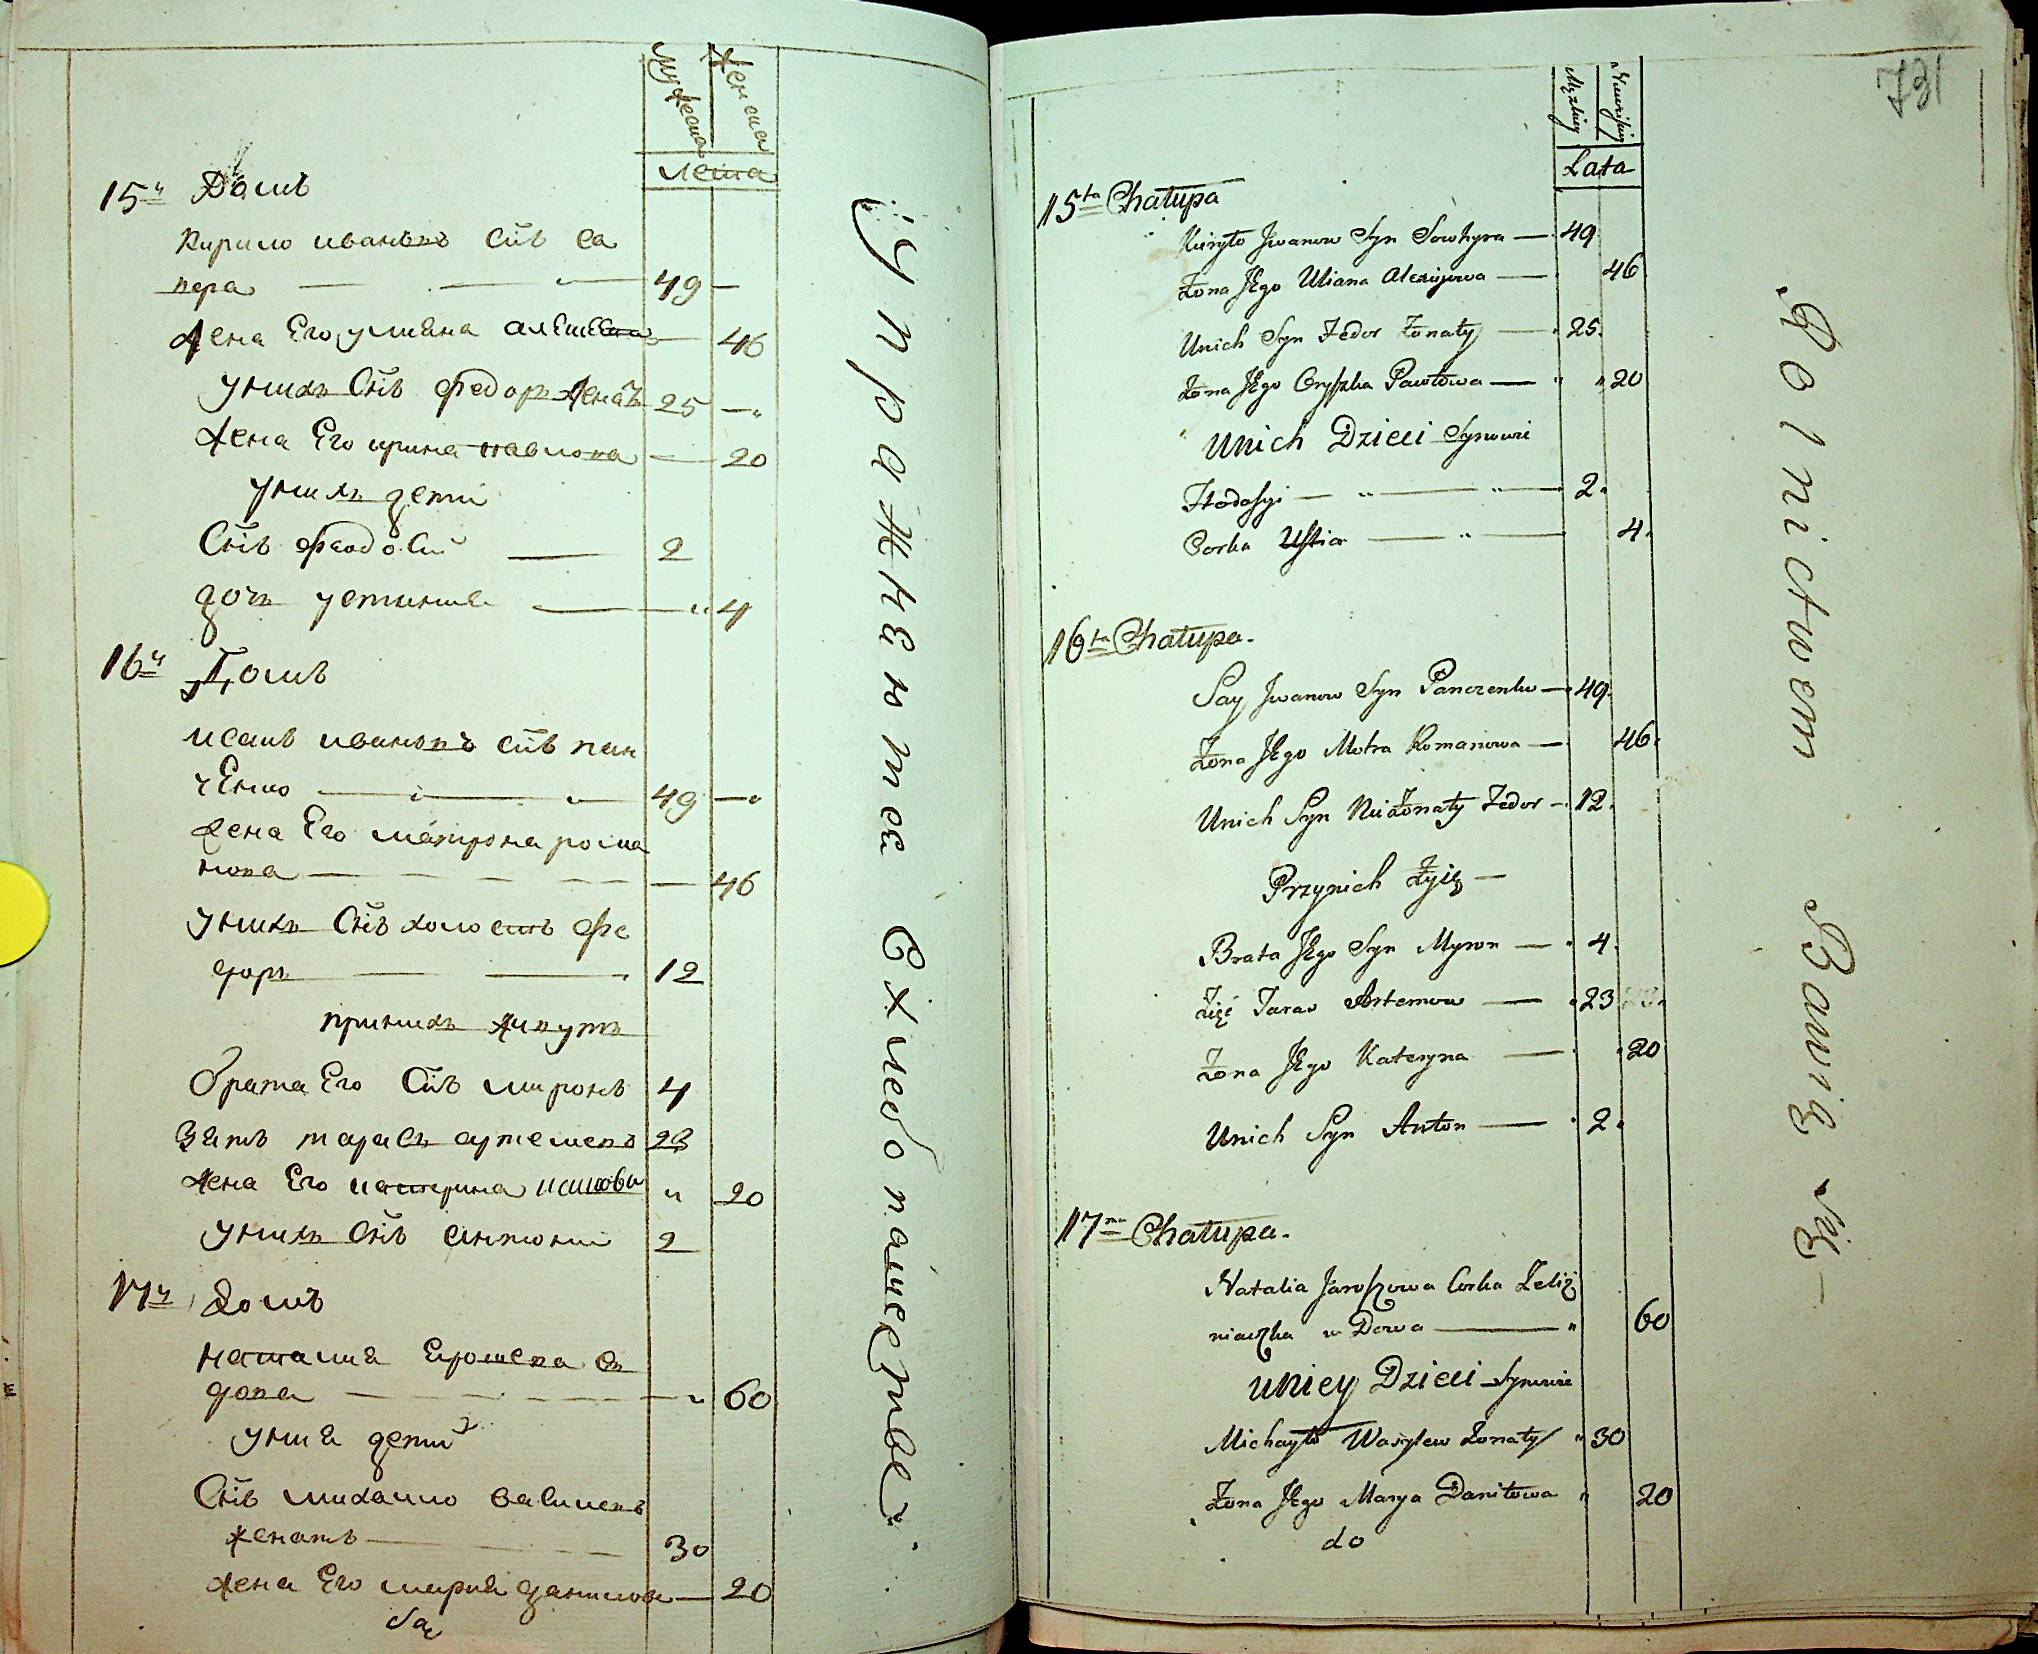 мужеска
женска
Лета
15й Домъ
Кирило ивановъ сн̃ъ са
пера — 49 —
жена Его улияна алексеева — 46
Унихъ Сн̃ъ Федоръ женатъ 25 —
жена Его ирина павлова — 20
унихъ дети
Сн̃ъ Феодосий — 2
дочь устиния — 4
16й Домъ
исаия ивановъ сн̃ъ пан
ченко — 49 —
жена Его матрона рома
нова — 46
Унихъ Сн̃ъ холостъ Фе
доръ — 12
принихъ живутъ
брата Его Сн̃ъ миронъ 4
Зять тарасъ артемевъ 23
жена Его катерина 20
Унихъ Сн̃ъ антоний 2
17й Домъ
наталия Ерошева в
дова — 60
Унея дети
Сн̃ъ михаило василевъ
женатъ — 30
жена Его мария данилова — 20
упражняютса Вхлебопашестве
731
Męzkiey
Niewieściey
Lata
15ta Chałupa
Kiryło Jwanow Syn Sowhyra — 49
Żona JEgo Uliana Alexiejowa — 46
Unich Syn Fedor Żonaty — 25.
Żona JEgo Oryszka Pawłowa — 20
Unich Dzieci Synowie
Ftodosyi — 2.
Corka Ustia — 4.
16ta Chałupa.
Say Jwanow Syn Panczenko — 49.
Żona JEgo Motra Romanowa — 46.
Unich Syn Nieżonaty Fedor — 12.
Przynich Żyią —
Brata JEgo Syn Myron — 4.
Zięć Taras Artemow — 23
Żona JEgo Kateryna — 20
Unich Syn Anton — 2.
17ma Chałupa.
Natalia Jaroszowa Corka Zeliź
niaczka w Dowa — 60
Uniey Dzieci Synowie
Michayło Wasylew Żonaty 30
Żona JEgo Marya Daniłowa 20
do
Rolnictwem Bawią się —